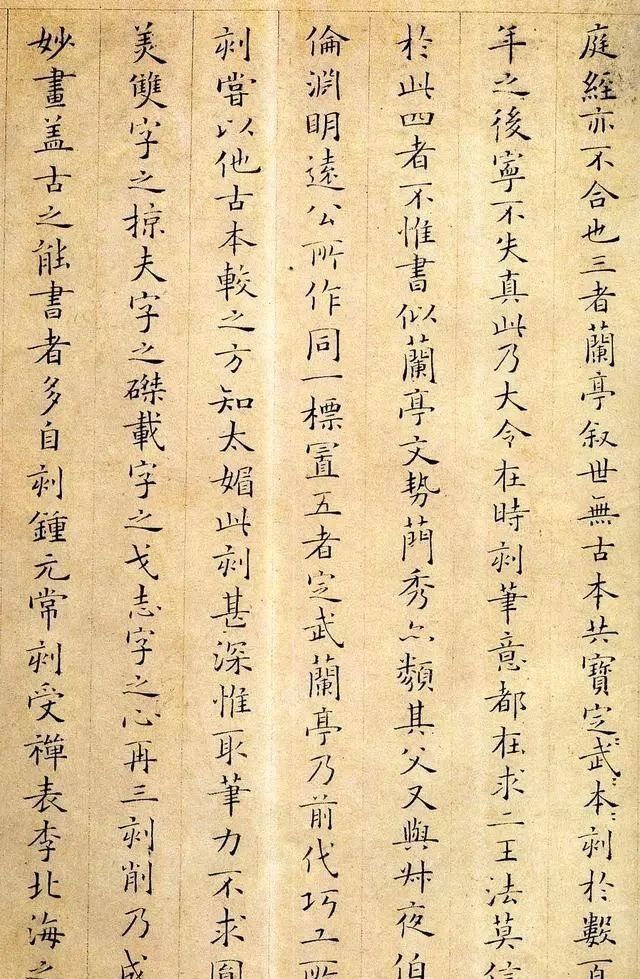 庭經亦不合也三者蘭亭叙世無古本共寶定武本刻於數百
年之後寧不失真此乃大令在時刻筆意都在求二王法莫信
於此四者不惟書似蘭亭文勢蕑秀亦類其父又與叔夜伯
倫淵明遠公所作同一標置五者定武蘭亭乃前代巧工所
刻嘗以他古本較之方知太媚此刻甚深惟取筆力不求圓
美雙字之掠夫字之磔載字之戈志字之心再三刻削乃成
妙畫盖古之能書者多自刻鍾元常刻受禪表李北海之